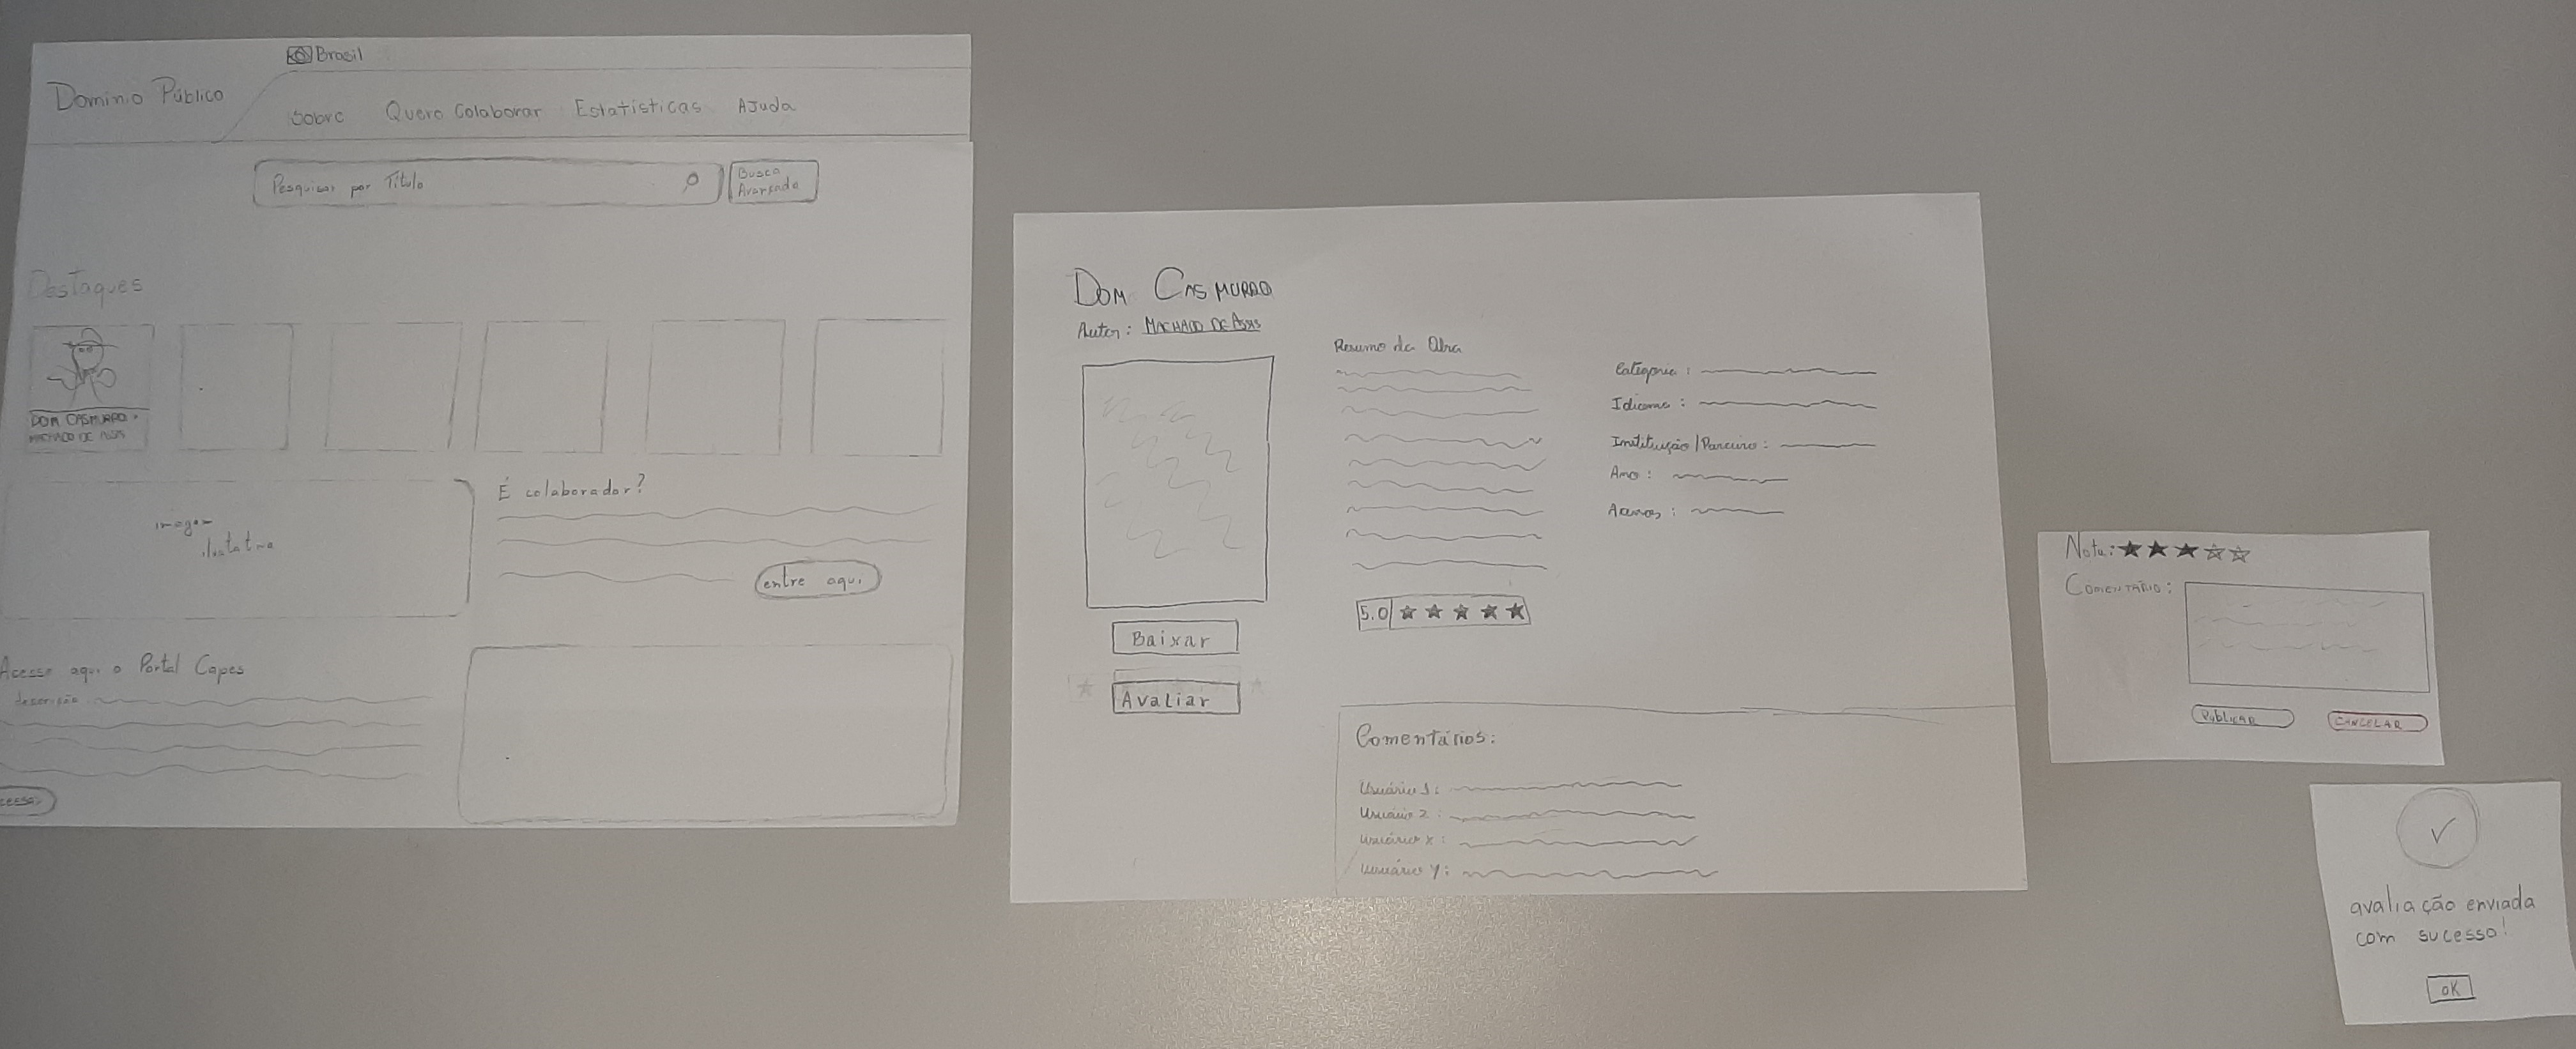 Brasil
Dominio Público
Sobre Quero Colaborar Estatisticas Ajuda
Pesquisar por Título
Busca
Avançada
Destaques
DOM CASMURRO -
MACHADO DE ASSIS
imagem
ilustativa
É colaborador?
entre aqui
Acesse aqui o Portal Capes
descrição
DOM CASMURRO
Autor: MACHADO DE ASSIS
Resumo da Obra
Categoria:
Idioma:
Instituição/Parceiro:
Ano:
Acessos:
5.0
Baixar
Avaliar
Comentários:
Usuário 1:
Usuário 2:
Usuário X:
Usuário Y:
Nota:
COMENTÁRIO:
PUBLICAR
CANCELAR
avaliação enviada
com sucesso!
OK